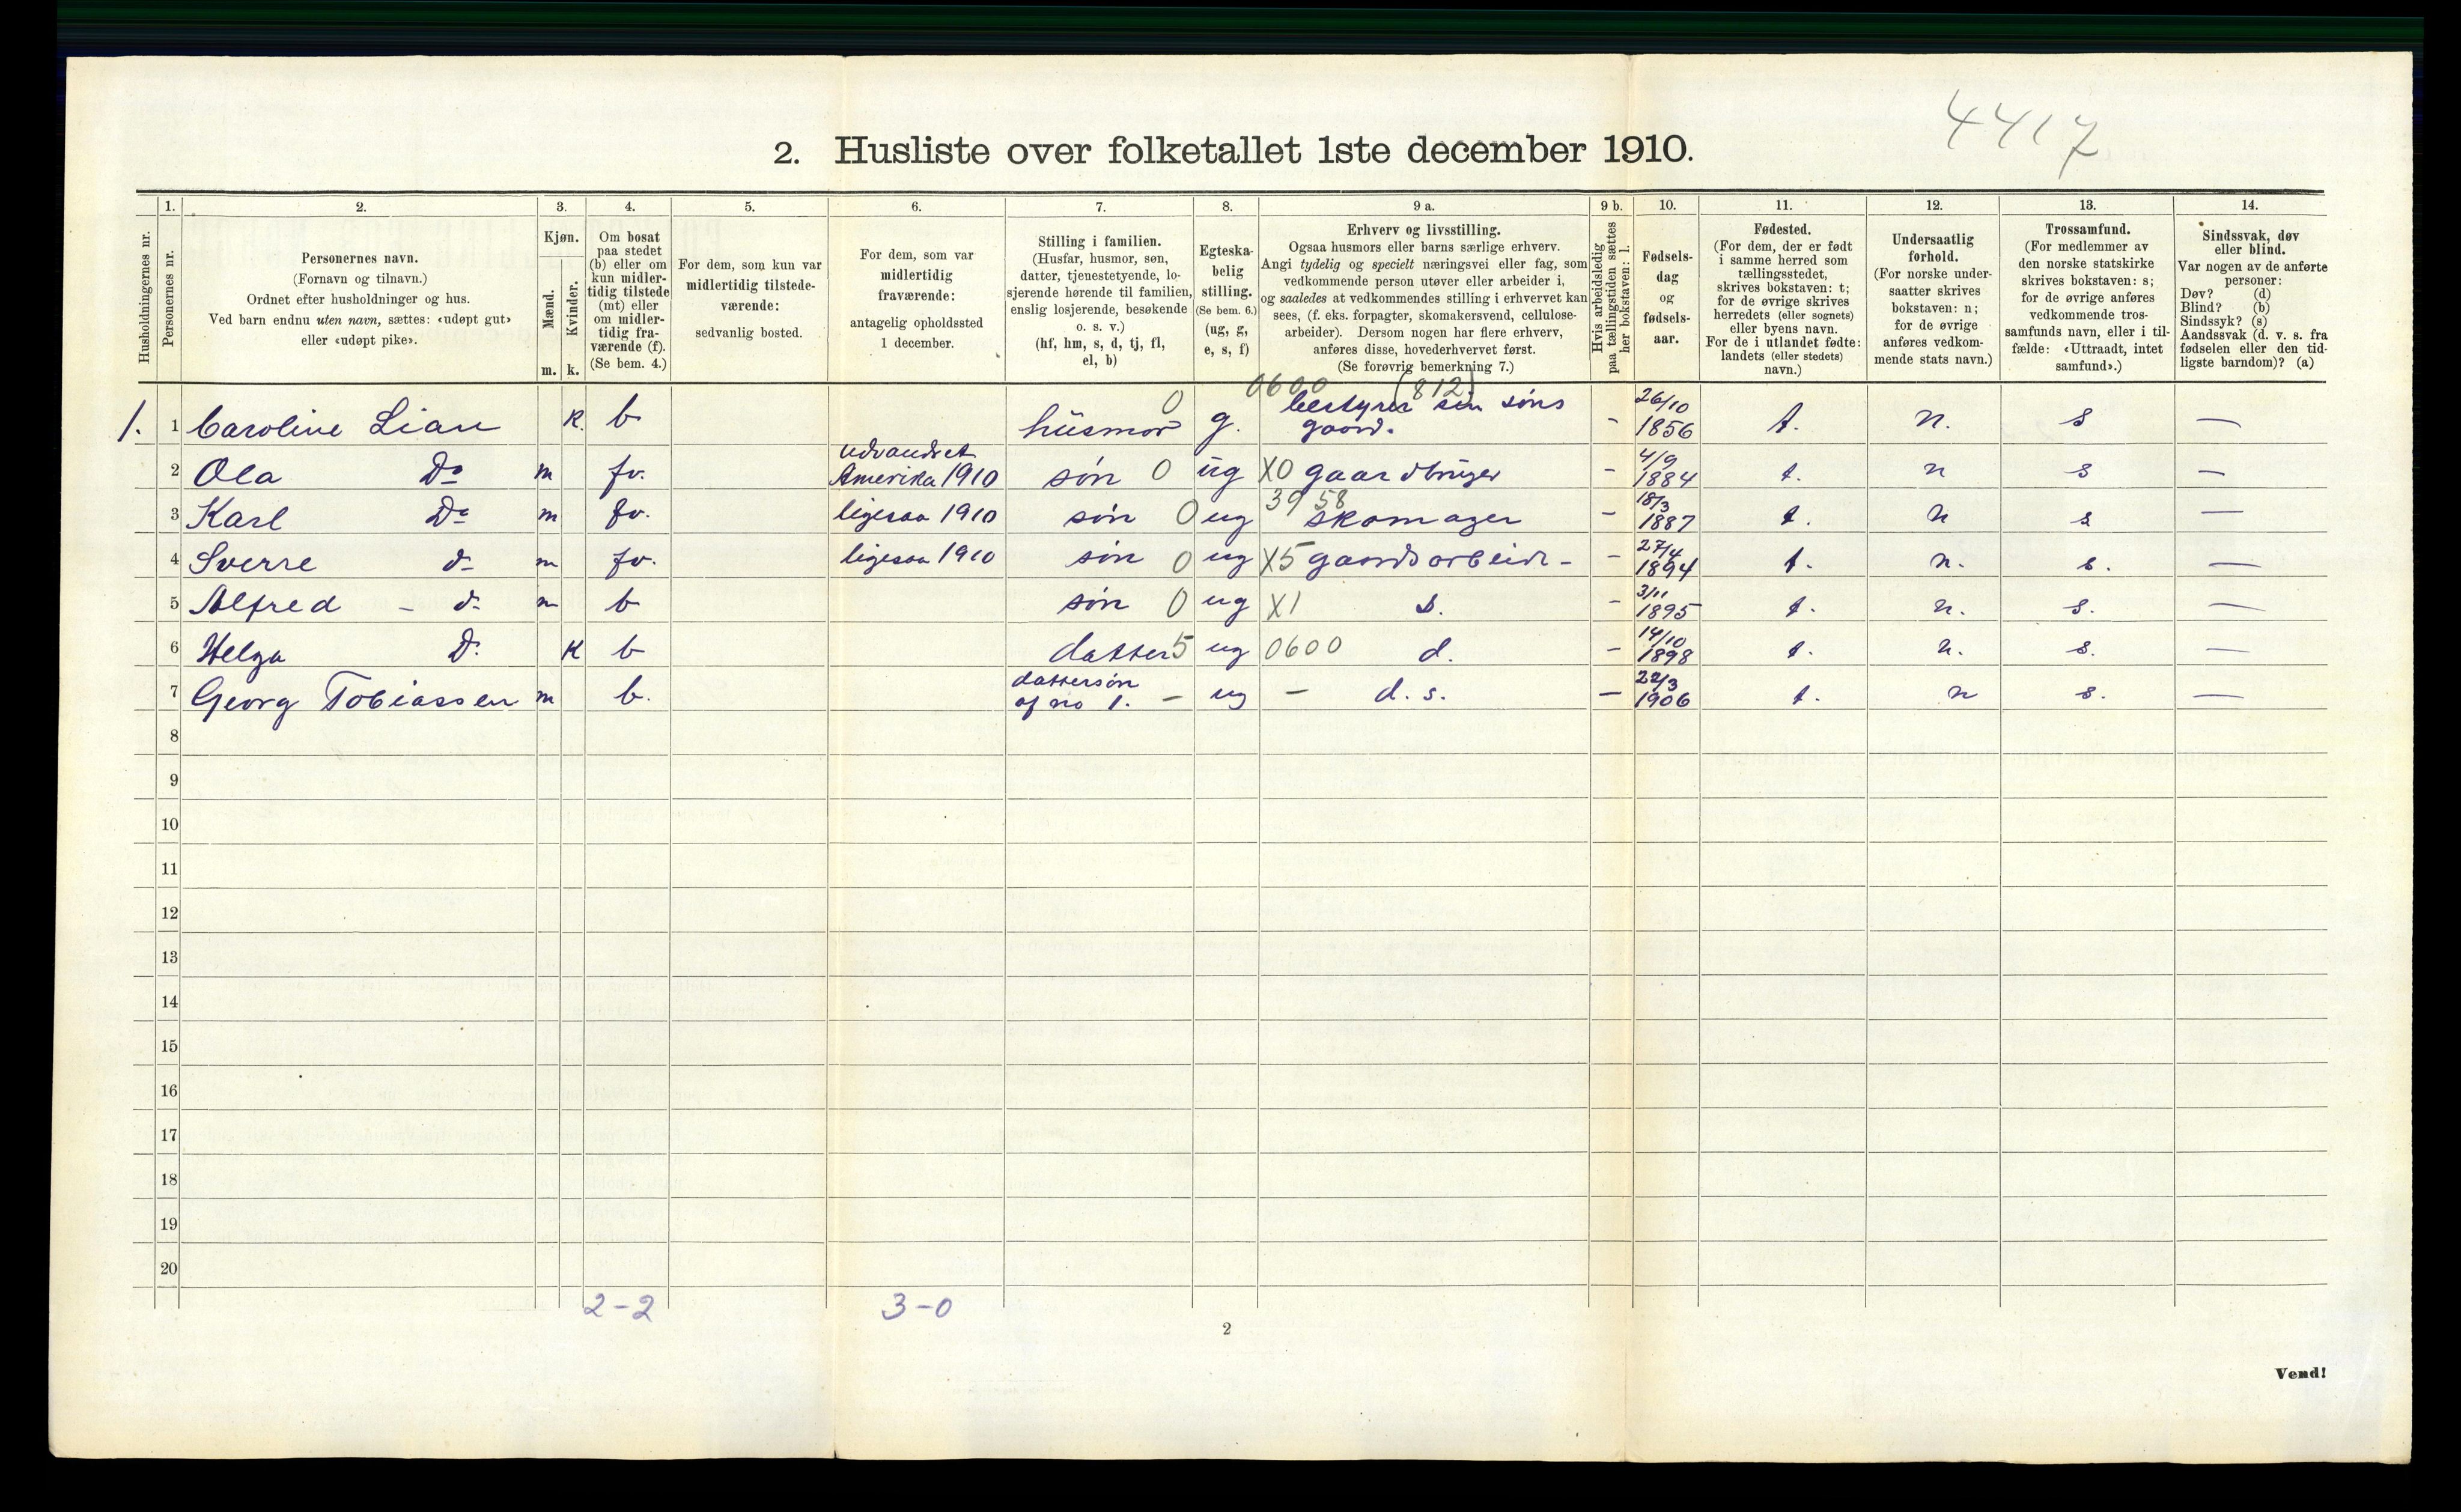 4417
2. Husliste over folketallet 1ste december 1910.
Husholdningernes nr.
1.
Personernes nr.
2.
Personernes navn.
(Fornavn og tilnavn.)
Ordnet efter husholdninger og hus.
Ved barn endnu uten navn, sættes: «udøpt gut»
eller «udøpt pike».
3.
Kjøn.
Mænd.
Kvinder.
m. k.
4.
Om bosat
paa stedet
(b) eller om
kun midler-
tidig tilstede
(mt) eller
om midler-
tidig fra-
værende (f).
(Se bem. 4.)
5.
For dem, som kun var
midlertidig tilstede-
værende:
sedvanlig bosted.
6.
For dem, som var
midlertidig
fraværende:
antagelig opholdssted
1 december.
7.
Stilling i familien.
(Husfar, husmor, søn,
datter, tjenestetyende, lo-
sjerende hørende til familien,
enslig losjerende, besøkende
o. s. v.)
(hf, hm, s, d, tj, fl,
el, b)
8.
Egteska-
belig
stilling.
(Se bem. 6.)
(ug, g,
e, s, f)
9 a.
Erhverv og livsstilling.
Ogsaa husmors eller barns særlige erhverv.
Angi tydelig og specielt næringsvei eller fag, som
vedkommende person utøver eller arbeider i,
og saaledes at vedkommendes stilling i erhvervet kan
sees, (f. eks. forpagter, skomakersvend, cellulose-
arbeider). Dersom nogen har flere erhverv,
anføres disse, hovederhvervet først.
(Se forøvrig bemerkning 7.)
9 b.
Hvis arbeidsledig
paa tællingstiden sættes
her bokstaven: l.
10.
Fødsels-
dag
og
fødsels-
aar.
11.
Fødested.
(For dem, der er født
i samme herred som
tællingsstedet,
skrives bokstaven: t;
for de øvrige skrives
herredets (eller sognets)
eller byens navn.
For de i utlandet fødte:
landets (eller stedets)
navn.)
12.
Undersaatlig
forhold.
(For norske under-
saatter skrives
bokstaven: n;
for de øvrige
anføres vedkom-
mende stats navn.)
13.
Trossamfund.
(For medlemmer av
den norske statskirke
skrives bokstaven: s;
for de øvrige anføres
vedkommende tros-
samfunds navn, eller i til-
fælde: «Uttraadt, intet
samfund».)
14.
Sindssvak, døv
eller blind.
Var nogen av de anførte
personer:
Døv? (d)
Blind? (b)
Sindssyk? (s)
Aandssvak (d. v. s. fra
fødselen eller den tid-
ligste barndom)? (a)
0600 (812)
1. 1 Caroline Lian k. b husmor 0 g. bestyrer sin søns gaard. - 26/10 1856 t. n. s —
2 Ola Do m fv. udvandret Amerika 1910 søn 0 ug X0 gaardbruger - 4/9 1884 t. n s —
3 Karl Do m fv. ligesaa 1910 søn 0 ug 3958 skomager - 18/3 1887 t. n s —
4 Sverre d- m fv. ligesaa 1910 søn 0 ug X5 gaardsarbeide - - 27/4 1894 t. n. s. —
5 Alfred - d- m b søn 0 ug X1 d. - 3/11 1895 t. n. s. —
6 Helga D. k b datter 5 ug 0600 d. - 14/10 1898 t. n. s. —
7 Georg Tobiassen m b. dattersøn af no 1. - ug - d. s. - 22/3 1906 t. n s. —
8
9
10
11
12
13
14
15
16
17
18
19
20
2-2 3-0
2
Vend!